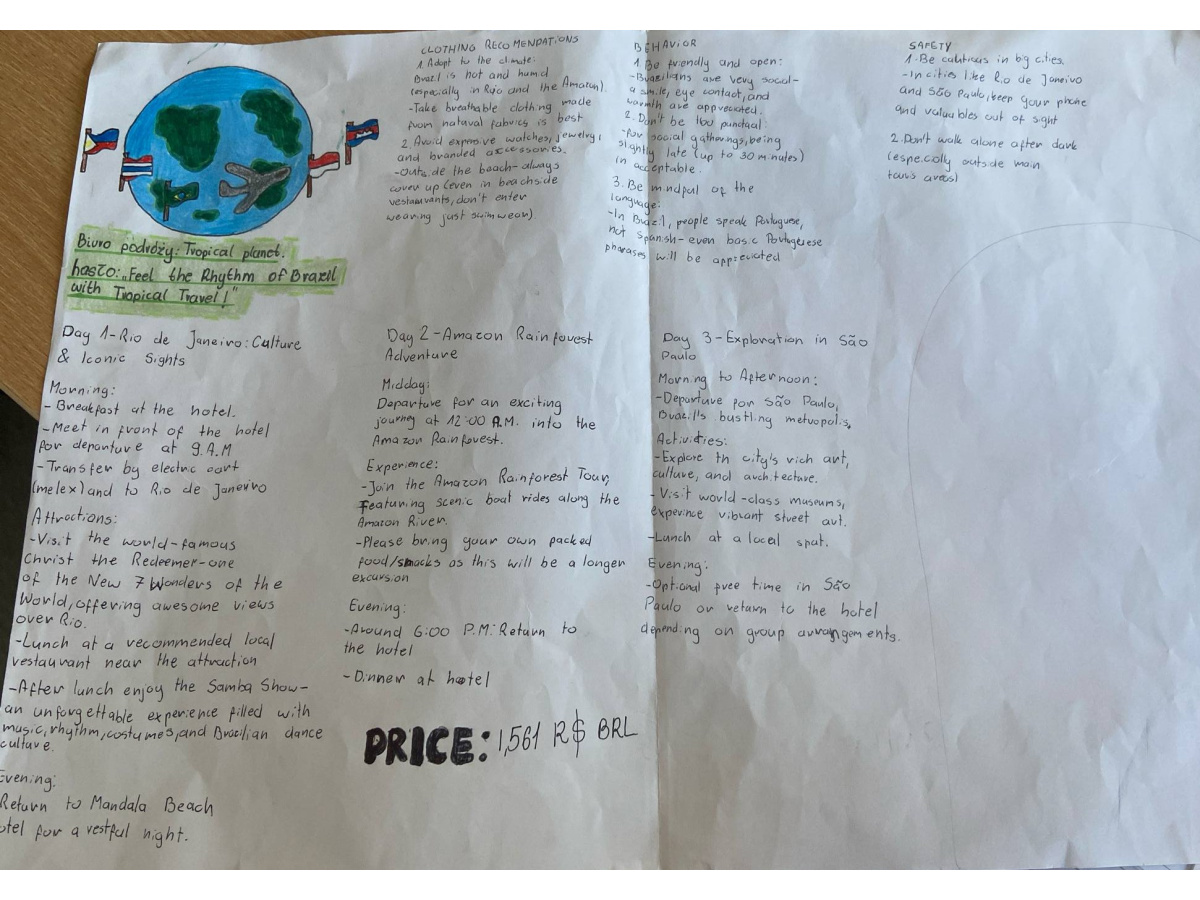 Biuro podróży: Tropical planet.
hasło: „Feel the Rhythm of Brazil
with Tropical Travel!"
CLOTHING RECOMENDATIONS
1. Adapt to the climate:
Brazil is hot and humid
(especially in Rio and the Amazon).
-Take breathable clothing made
from natural fabrics is best
2. Avoid expensive watches, jewelry,
and branded accessories.
-Outside the beach-always
cover up (even in beachside
restaurants, don't enter
wearing just swimwear).
BEHAVIOR
1. Be friendly and open:
-Brazilians are very social-
a smile, eye contact, and
warmth are appreciated.
2. Don't be too punctual:
-for social gatherings, being
slightly late (up to 30 minutes)
in acceptable.
3. Be mindful of the
language:
-In Brazil, people speak Portuguese,
not Spanish-even basic Portugese
pharases will be appreciated
SAFETY
1. Be cautious in big cities.
-In cities like Rio de Janeiro
and São Paulo, keep your phone
and valuables out of sight
2. Don't walk alone after dark
(especially outside main
areas)
Day 1-Rio de Janeiro: Culture
& Iconic Sights
Morning:
- Breakfast at the hotel.
-Meet in front of the hotel
for departure at 9.A.M
-Transfer by electric cart
(melex) and to Rio de Janeiro
Attractions:
-Visit the world-famous
Christ the Redeemer-one
of the New 7 Wonders of the
World, offering awesome views
over Rio.
-Lunch at a recommended local
restaurant near the attraction
-After lunch enjoy the Samba Show-
an unforgettable experience filled with
music, rhythm, costumes, and Brazilian dance
culture.
Evening:
Return to Mandala Beach
otel for a restful night.
Day 2-Amazon Rainforest
Adventure
Midday:
Departure for an exciting
journey at 12:00 A.M. into the
Amazon Rainforest.
Experience:
-Join the Amazon Rainforest Tour,
Featuring scenic boat rides along the
Amazon River.
-Please bring your own packed
food/snacks as this will be a longer
excursion
Evening:
-Around 6:00 P.M: Return to
the hotel
-Dinner at hotel
PRICE: 1,561 R$ BRL
Day 3-Exploration in São
Paulo
Morning to Afternoon:
-Departure for São Paulo,
Brazil's bustling metropolis,
Activities:
-Explore th city's rich art,
culture, and architecture.
-Visit world-class museums,
experince vibrant street art.
-Lunch at a local spat.
Evening:
-Optional free time in São
Paulo or return to the hotel
depending on group arrangements.